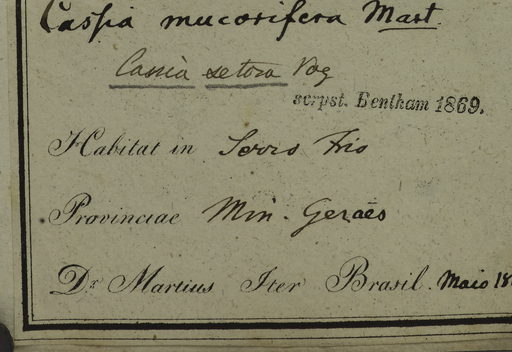 Cassia mucorifera Mart.
Cassia setosa Vog
scrpst. Bentham 1869.
Habitat in Serro Frio
Provinciae Min. Geraës
Dr Martius Iter Brasil. Maio 18